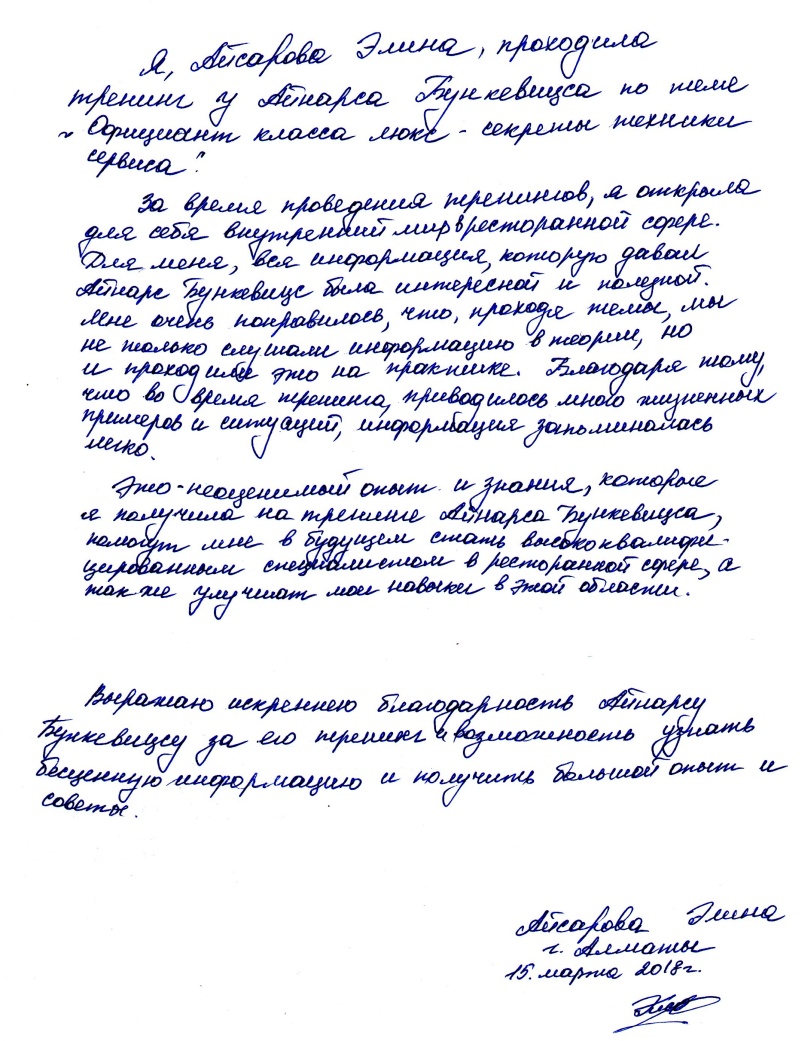 Я, Айсарова Элина, проходила
тренинг у Айнарса Бункевицса по теме
"Официант класса люкс - секреты техники
сервиса".
За время проведения тренингов, я открыла
для себя внутренний мир в ресторанной сфере.
Для меня, вся информация, которую давал
Айнарс Бункевицс была интересной и полезной.
Мне очень понравилось, что, проходя темы, мы
не только слушали информацию в теории, но
и проходили это на практике. Благодаря тому,
что во время тренинга, приводилось много жизненных
примеров и ситуаций, информация запоминалась
легко.
Это - неоценимый опыт и знания, которые
я получила на тренинге Айнарса Бункевицса,
помогут мне в будущем стать высококвалифи-
цированным специалистом в ресторанной сфере, а
так же улучшат мои навыки в этой области.
Выражаю искреннею благодарность Айнарсу
Бункевицсу за его тренинг и возможность узнать
бесценную информацию и получить большой опыт и
советы.
Айсарова Элина
г. Алматы
15. марта 2018г.